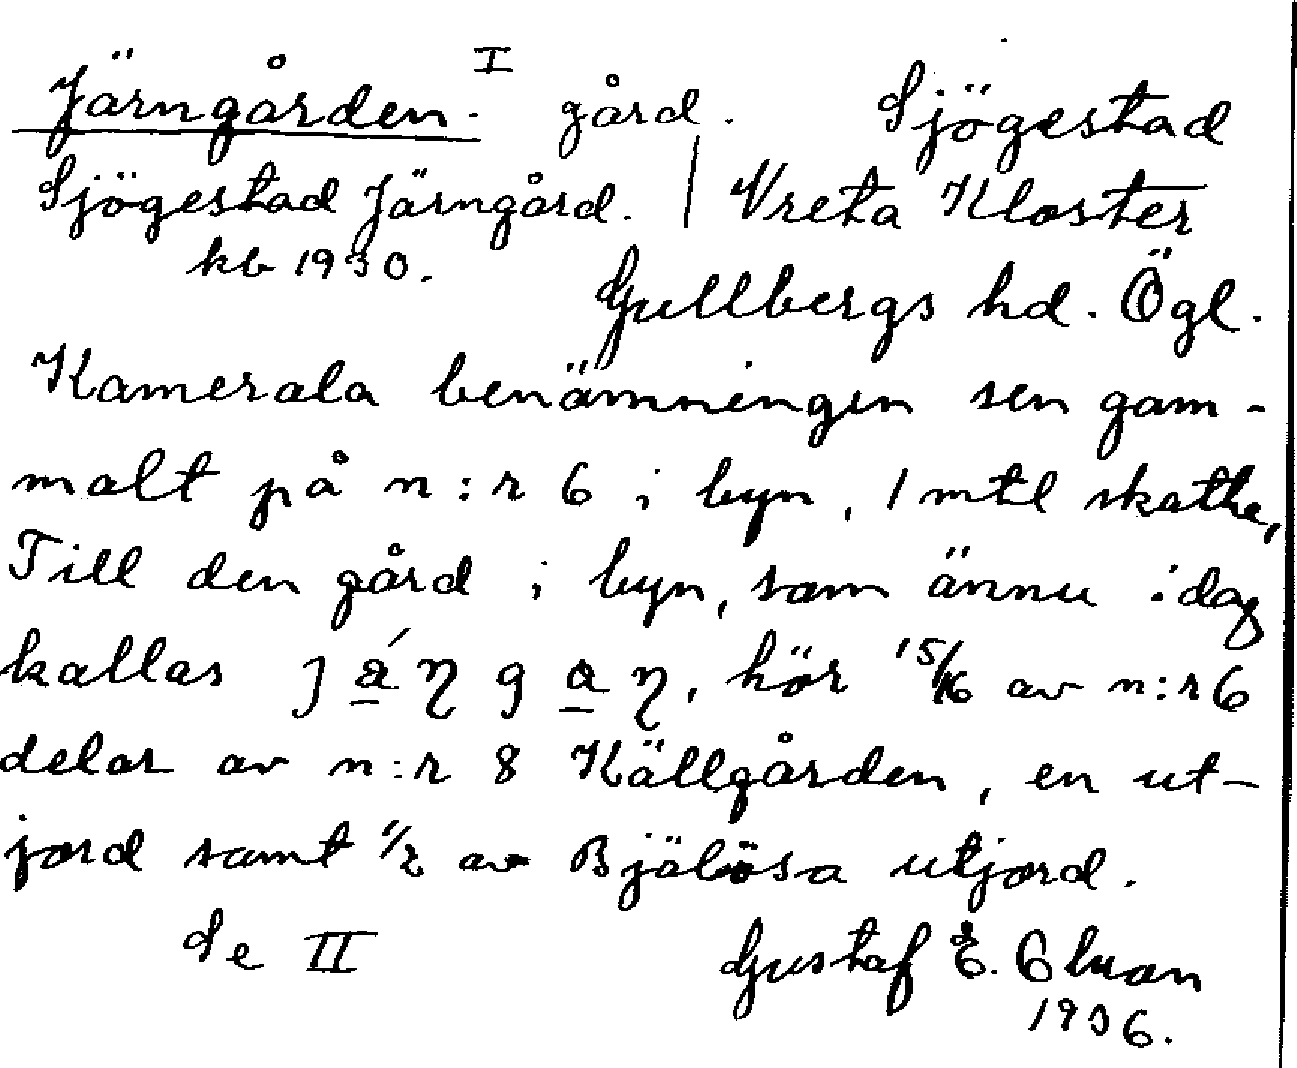 Järngården. I gård. Sjögestad
Sjögestad Järngård. | Vreta Kloster
kb 1930.
Gullbergs hd. Ögl.
Kamerala benämningen sen gam-
malt på n:r 6 i byn, 1 mtl skatte,
Till den gård i byn, som ännu idag
kallas j á η g a η, hör 15/16 av n:r 6
delar av n:r 8 Källgården, en ut-
jord samt 1/2 av Bjälösa utjord.
Se II
Gustaf E.
1936.